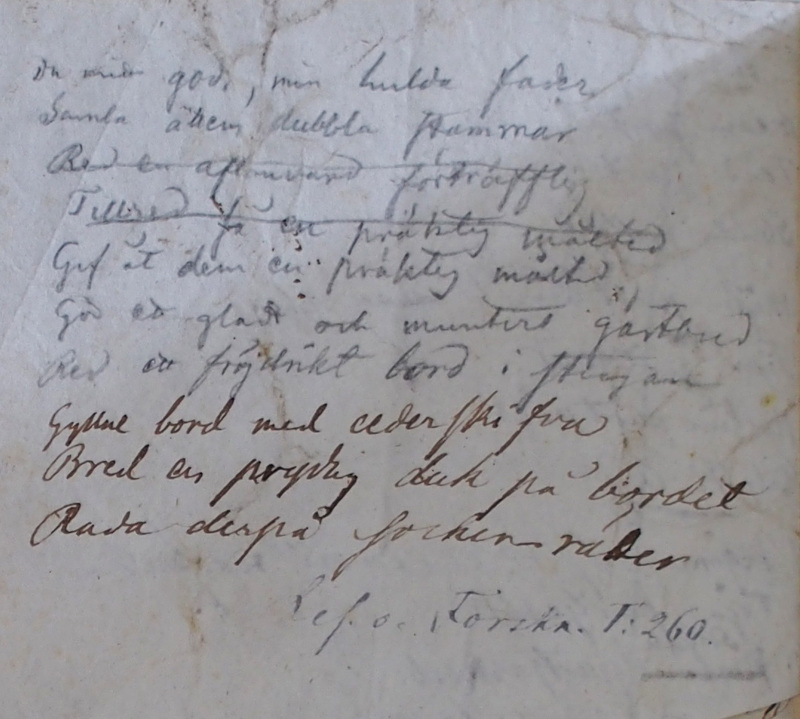 Du min gode, min hulda fader
Samla ätten dubbla stammar
Red en aftonvard förträfflig
Tillred få en präktig måltid
Gif åt dem en präktig måltid
Gör ett gladt och muntert gästbud
Red ett fröjdrikt bord i stugan
Gyllne bord med cederskifva
Bred en prydlig duk på bordet
Rada derpå sockenrader
Lef. o. Forskn. T: 260.